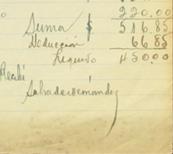 220.00
Suma $ 516.85
Deducción 66.85
Líquido 450.00
Recibí
Salvador Hernández